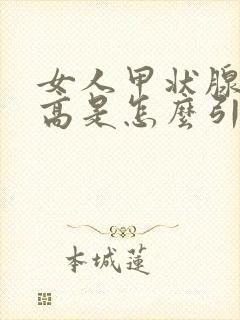 女人甲状腺
高是怎麼引
本城蓮